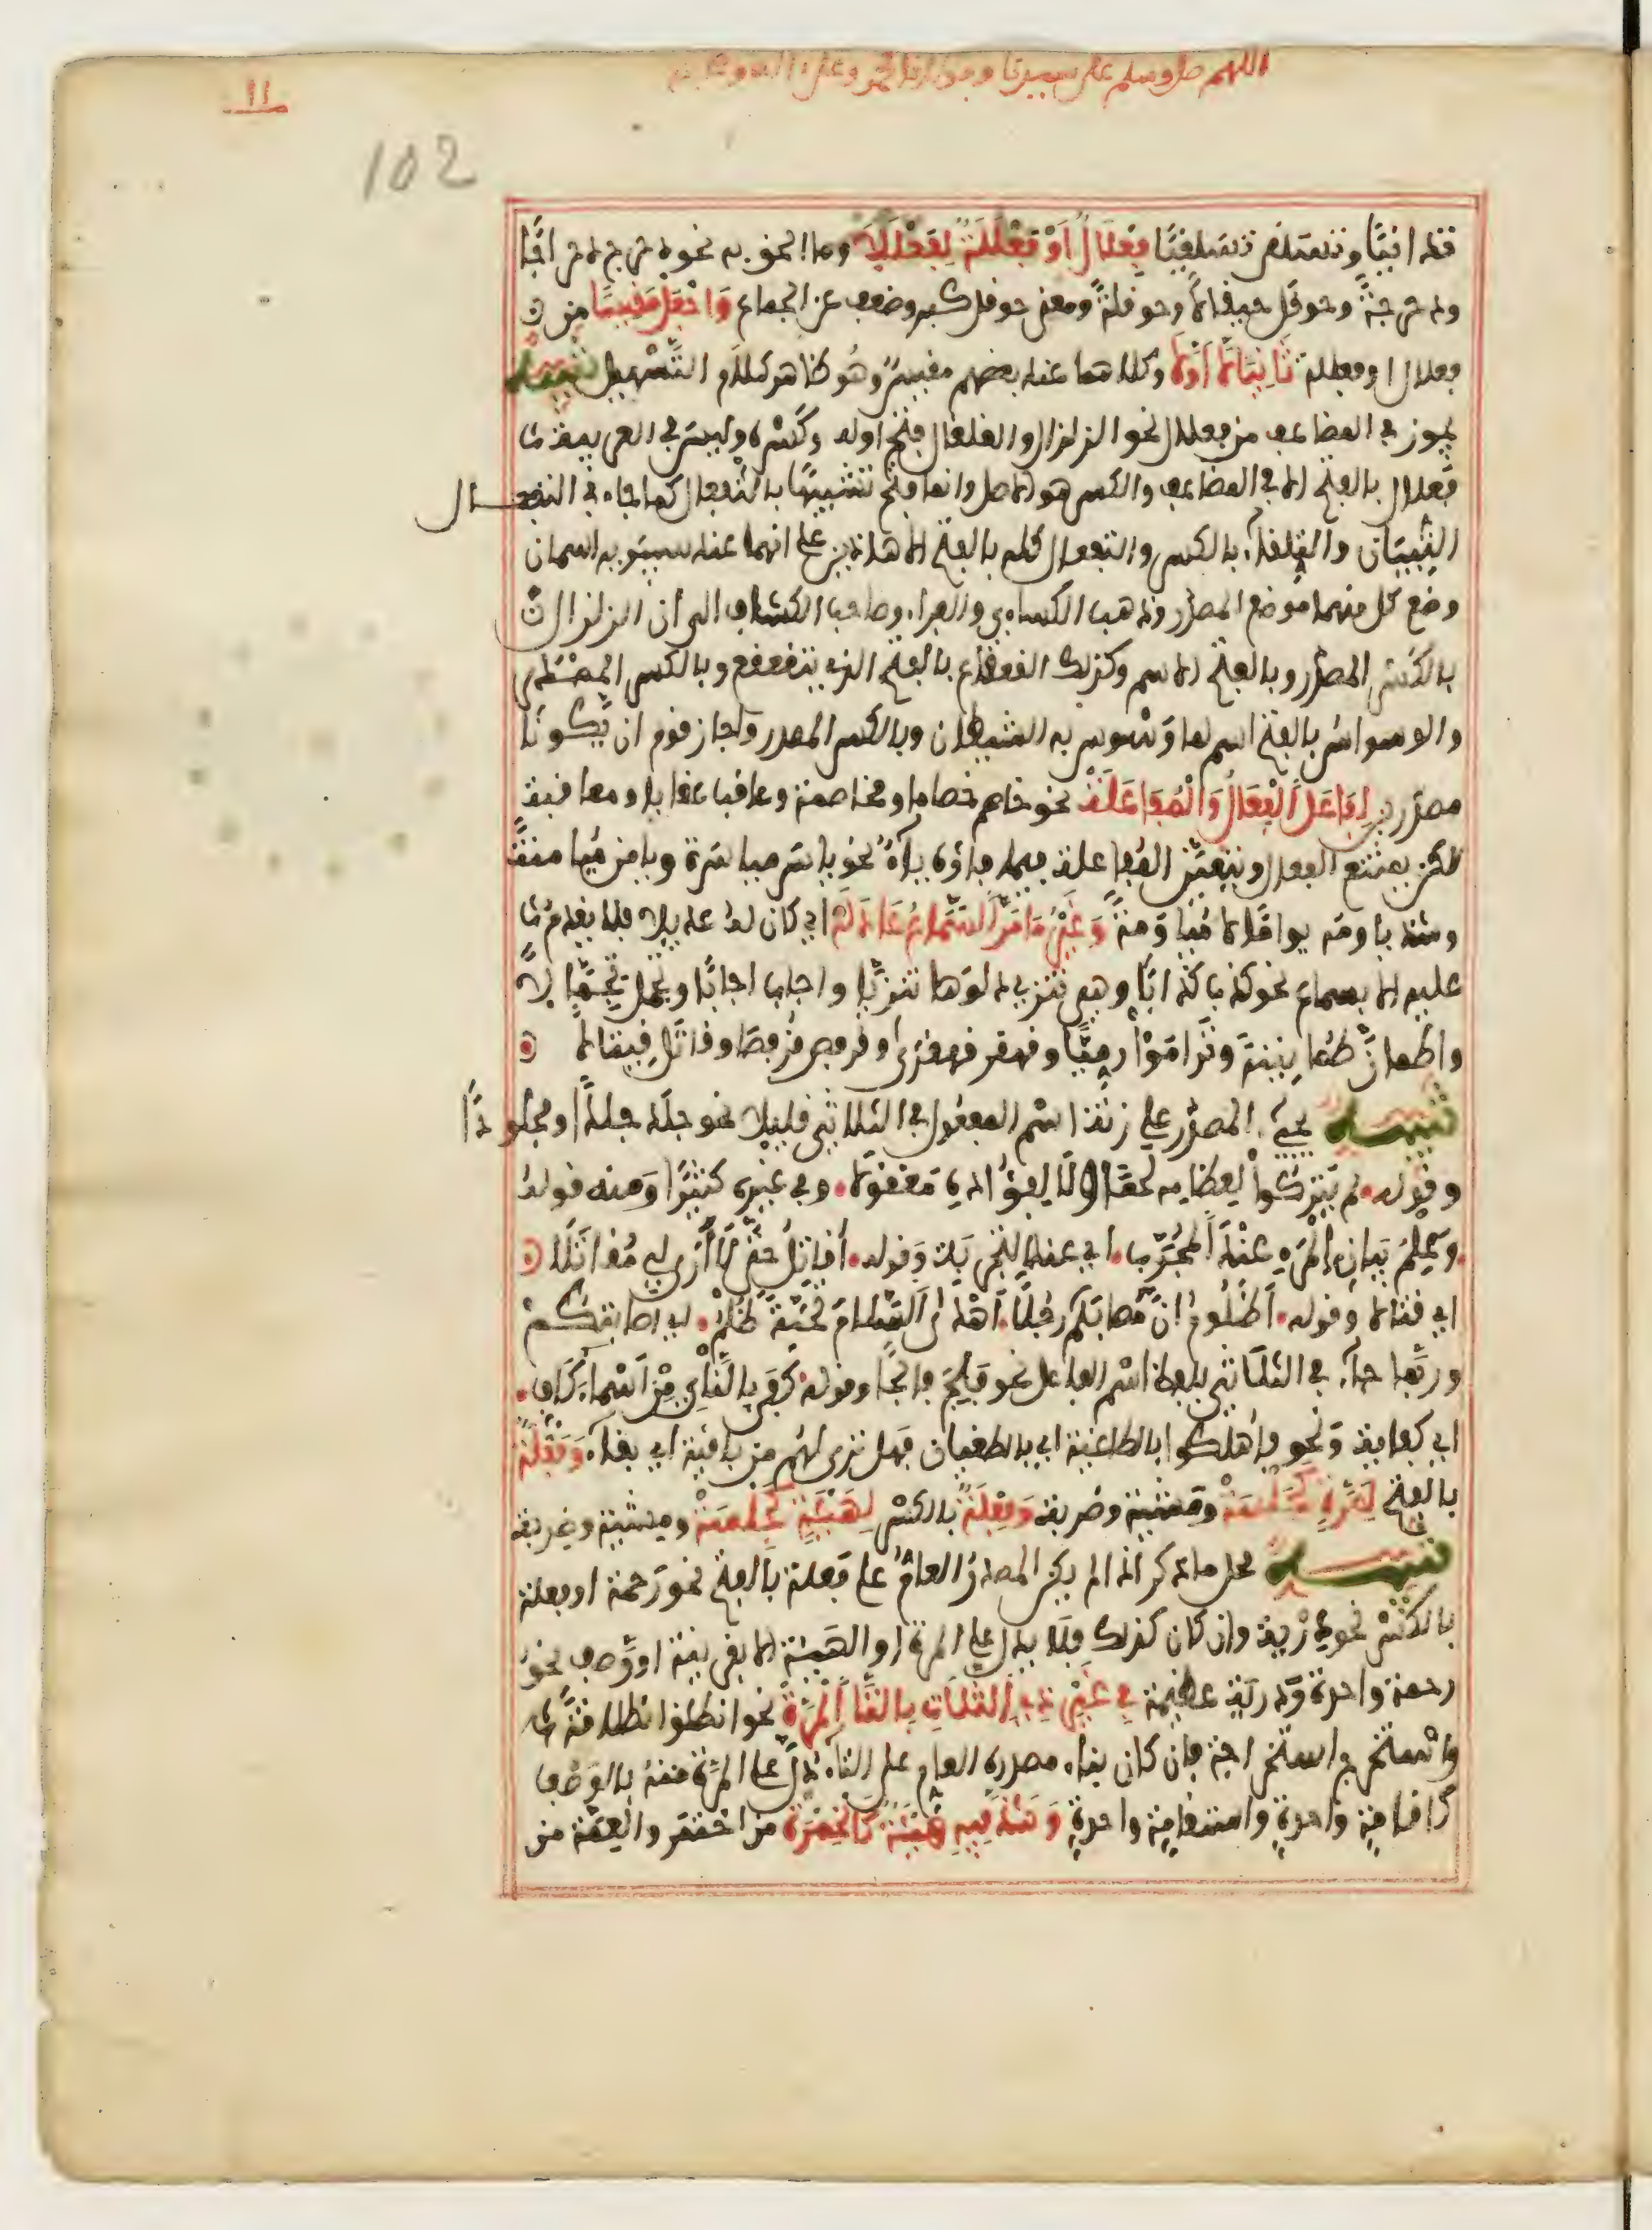 اللهم صل وسلم على سيدنا ومولانا محمد وعلى آله وصحبه
11
102
تدانيا وتسلقى تسلقيا فِعْلَالٌ اَوْ فَعْلَلَةٌ لِفَعْلَلَا وما الحق به نحو دحرج دحراجا
ودحرجة وحوقل حيقالا وحوقلة ومعنى حوقل كبر وضعف عن الجماع وَاجْعَلْ مَقِيسًا من
فعلال او فعللة ثَانِيًا لَا اَوَّلَا وكلاهما عند بعضهم مقيس وهو ظاهر كلام التسهيل تنبيه
يجوز في المضاعف من فعلال نحو الزلزال والقلقال فتح اوله وكسره وليس في العربية
فعلال بالفتح الا في المضاعف والكسر هو الاصل وانما فتح تشبيها بالتفعال كما جاء في التفعال
التبيان والتلقاء بالكسر والتفعال كله بالفتح الا هذين على انهما عند سيبويه اسمان
وضع كل منهما موضع المصدر وذهب الكسائي والفراء وصاحب الكشاف الى ان الزلزال
بالكسر المصدر وبالفتح الاسم وكذلك القعقاع بالفتح الذي يتقعقع وبالكسر المصدر
والوسواس بالفتح اسم لما وسوس به الشيطان وبالكسر المصدر واجاز قوم ان يكونا
مصدرين لِفَاعَلَ الْفِعَالُ وَالْمُفَاعَلَهْ نحو خاصم خصاما ومخاصمة وعاقب عقابا ومعاقبة
لكن يمتنع الفعال وتتعين المفاعلة فيما فاؤه ياء نحو ياسر مياسرة ويامن ميامنة
وشذ ياومه يواما لا مياومة وَغَيْرُ مَا مَرَّ السَّمَاعُ عَادَلَهْ اي كان له عديلا فلا يقدم
عليه الا بسماع نحو كذب كذابا وهي تنزي دلوها تنزيا واجاب اجابا وتحمل تحمالا
واطمأن طمأنينة وتراموا رميا وقهقر قهقرى وقرفص قرفصا وقاتل قيتالا
تنبيه يجيء المصدر على زنة اسم المفعول في الثلاثي قليلا نحو جلد جلدا ومجلودا
وقوله لم يتركوا لعظامه لحما ولا لفؤاده معقولا وفي غيره كثيرا ومنه قوله
وعلم بيان المرء عند المجرب اي عند التجربة وقوله أقاتل حتى لا أرى لي مقاتلا
اي قتالا وقوله أظلوم ان مصابكم رجلا أهدى السلام تحية ظلم اي اصابتكم
وربما جاء في الثلاثي بلفظ اسم الفاعل نحو فلج فالجا وقوله كفى بالنأي من أسماء كاف
اي كفاية ونحو فأهلكوا بالطاغية اي بالطغيان فهل ترى لهم من باقية اي بقاء وَفَعْلَةٌ
بالفتح لِمَرَّةٍ كَجَلْسَهْ ومشية وضربة وَفِعْلَةٌ بالكسر لِهَيْئَةٍ كَجِلْسَهْ ومشية وضربة
تنبيه محل ما ذكر اذا لم يكن المصدر العام على فعلة بالفتح نحو رحمة او فعلة
بالكسر نحو دربة وان كان كذلك فلا يدل على المرة او الهيئة الا بقرينة او وصف نحو
رحمة واحدة ودربة عظيمة فِي غَيْرِ ذِي الثَّلَاثِ بِالتَّا الْمَرَّةُ نحو انطلق انطلاقة
واستخرج استخراجة فان كان بناء مصدره العام على التاء دل على المرة منه بالوصف
كاقامة واحدة واستقامة واحدة وَشَذَّ فِيهِ هَيْئَةٌ كَالْخِمْرَهْ من اختمر والعمة من